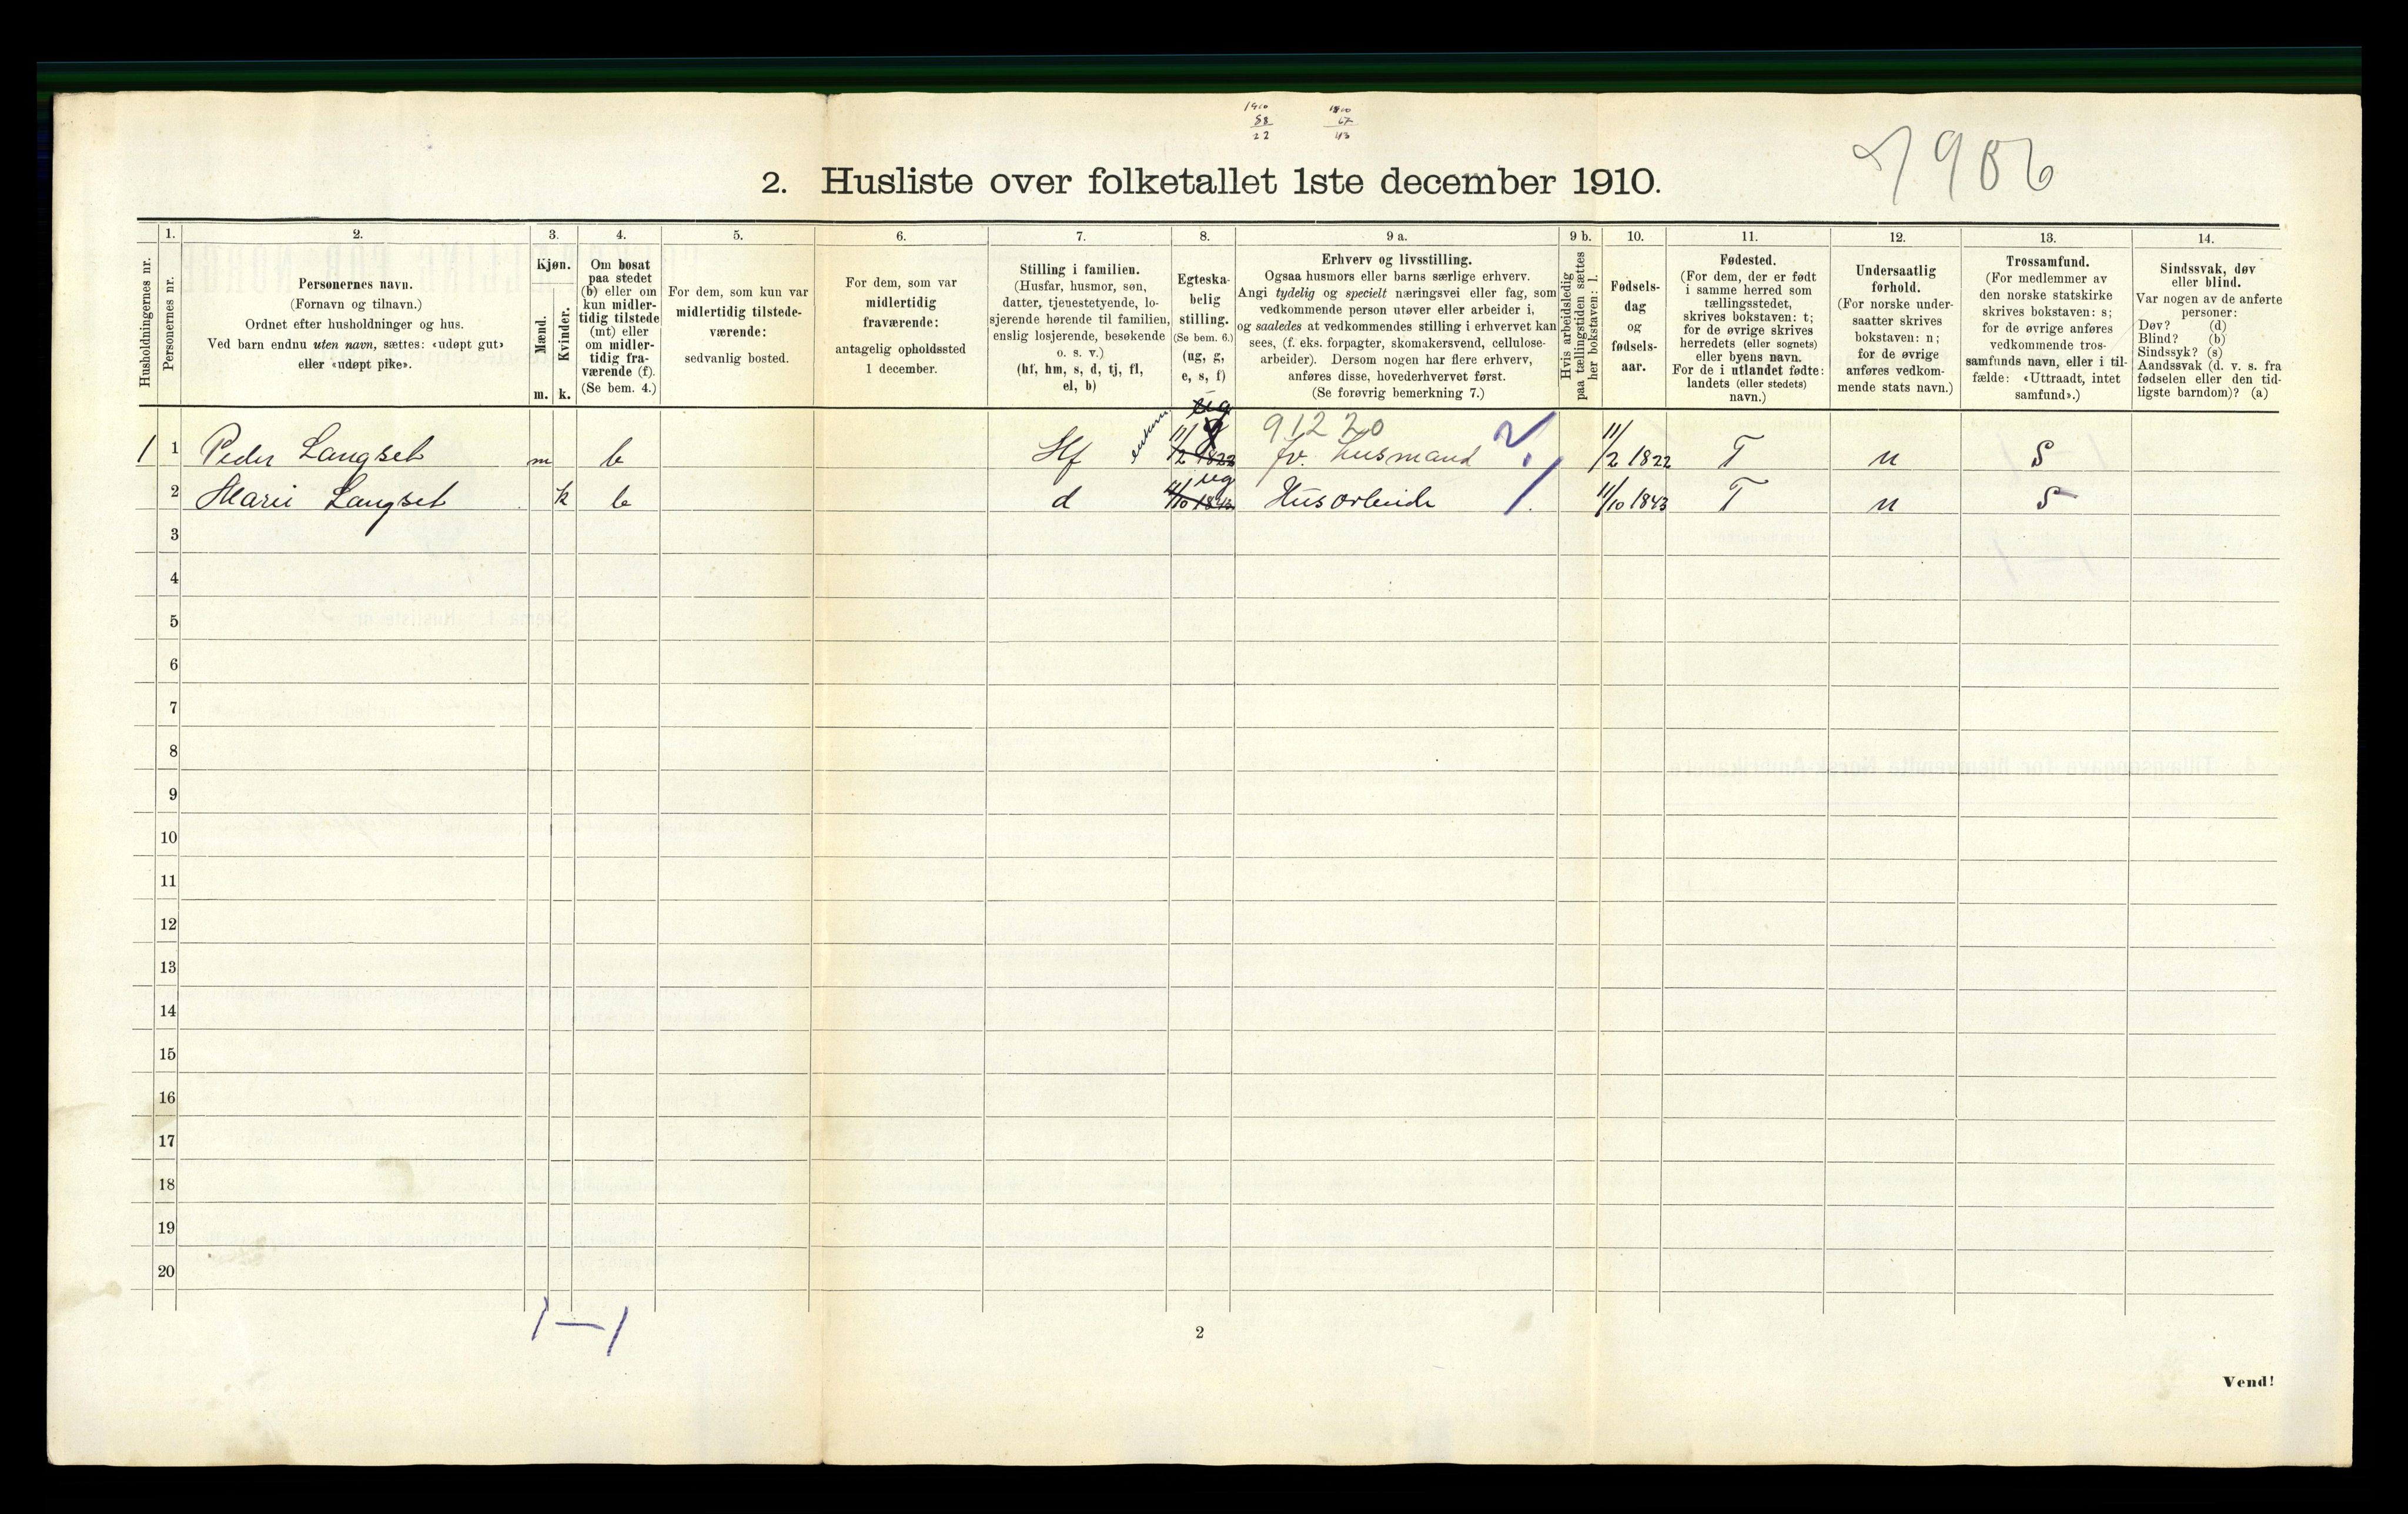 1910 1910
88 67
22 43
2. Husliste over folketallet 1ste december 1910.
1. 2. 3. 4. 5. 6. 7. 8. 9 a. 9 b. 10. 11. 12. 13. 14.
Husholdningernes nr.
Personernes nr.
Personernes navn.
(Fornavn og tilnavn.)
Ordnet efter husholdninger og hus.
Ved barn endnu uten navn, sættes: «udøpt gut»
eller «udøpt pike».
Kjøn.
Mænd.
Kvinder.
m. k.
Om bosat
paa stedet
(b) eller om
kun midler-
tidig tilstede
(mt) eller
om midler-
tidig fra-
værende (f).
(Se bem. 4.)
For dem, som kun var
midlertidig tilstede-
værende:
sedvanlig bosted.
For dem, som var
midlertidig
fraværende:
antagelig opholdssted
1 december.
Stilling i familien.
(Husfar, husmor, søn,
datter, tjenestetyende, lo-
sjerende hørende til familien,
enslig losjerende, besøkende
o. s. v.)
(hf, hm, s, d, tj, fl,
el, b)
Egteska-
belig
stilling.
(Se bem. 6.)
(ug, g,
e, s, f)
Erhverv og livsstilling.
Ogsaa husmors eller barns særlige erhverv.
Angi tydelig og specielt næringsvei eller fag, som
vedkommende person utøver eller arbeider i,
og saaledes at vedkommendes stilling i erhvervet kan
sees, (f. eks. forpagter, skomakersvend, cellulose-
arbeider). Dersom nogen har flere erhverv,
anføres disse, hovederhvervet først.
(Se forøvrig bemerkning 7.)
Hvis arbeidsledig
paa tællingstiden sættes
her bokstaven: l.
Fødsels-
dag
og
fødsels-
aar.
Fødested.
(For dem, der er født
i samme herred som
tællingsstedet,
skrives bokstaven: t;
for de øvrige skrives
herredets (eller sognets)
eller byens navn.
For de i utlandet fødte:
landets (eller stedets)
navn.)
Undersaatlig
forhold.
(For norske under-
saatter skrives
bokstaven: n;
for de øvrige
anføres vedkom-
mende stats navn.)
Trossamfund.
(For medlemmer av
den norske statskirke
skrives bokstaven: s;
for de øvrige anføres
vedkommende tros-
samfunds navn, eller i til-
fælde: «Uttraadt, intet
samfund».)
Sindssvak, døv
eller blind.
Var nogen av de anførte
personer:
Døv? (d)
Blind? (b)
Sindssyk? (s)
Aandssvak (d. v. s. fra
fødselen eller den tid-
ligste barndom)? (a)
ug
91220
1 1 Peder Langset m b Hf 11/2 1822 fv. Husmand 11/2 1822 T n S
ug
2 Marie Langset k b d 11/10 1843 Husarbeide 11/10 1843 T n S
3
4
5
6
7
8
9
10
11
12
13
14
15
16
17
18
19
20
1 — 1
2
Vend!